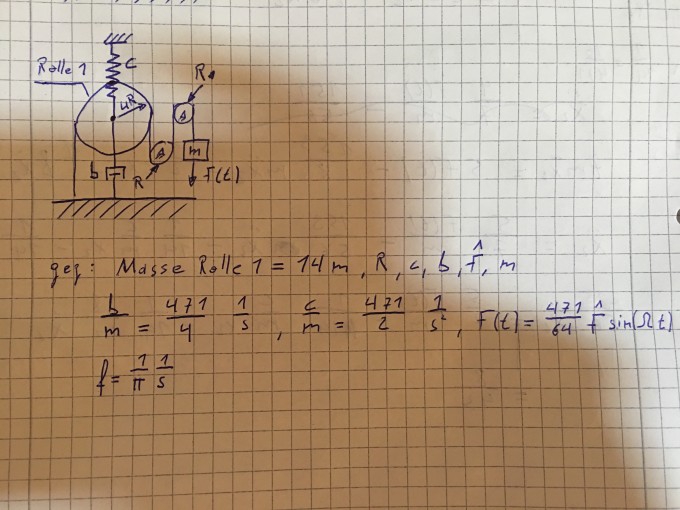 Rolle 1
c
R
4R
A
A
m
b
R
F(t)
geg: Masse Rolle 1 = 14m, R, c, b, F̂, m
b/m = 471/4 1/s, c/m = 471/2 1/s², F(t) = 471/64 F̂ sin(Ωt)
f = 1/π 1/s